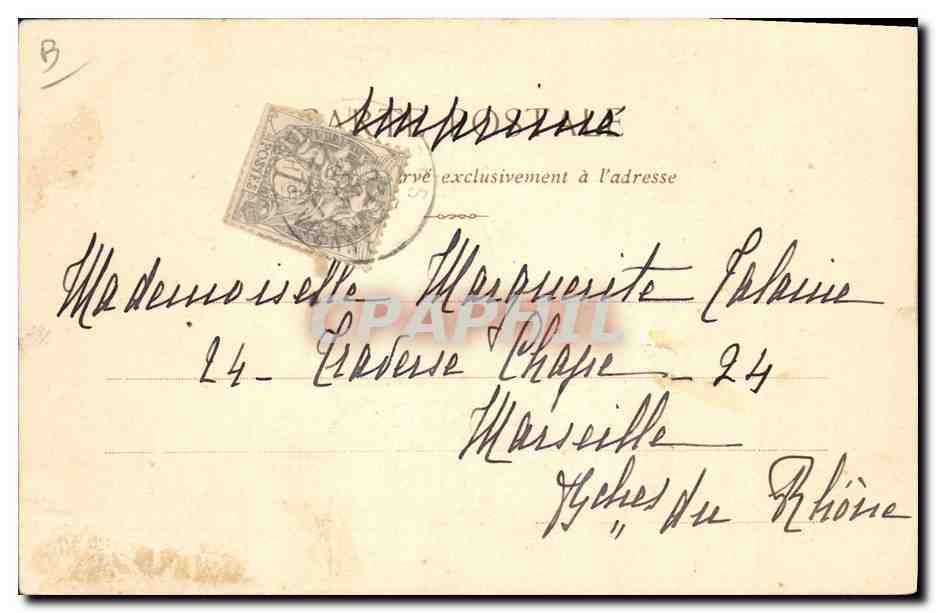 B
CARTE POSTALE
Imprimé
rvé exclusivement à l'adresse
POSTES
Mademoiselle Marguerite Talaire
CPAPHIL
24 - Traverse Chape - 24
Marseille
Bches du Rhône